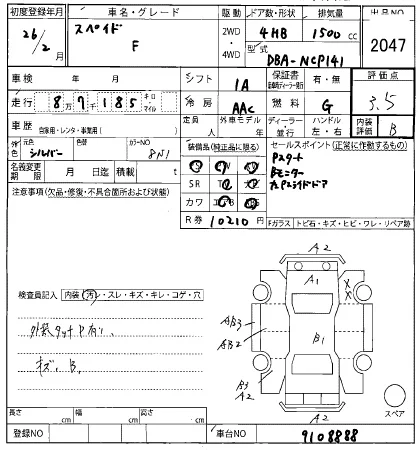 初度登録年月 車名・グレード 駆動 ドア数・形状 排気量 出品NO
26/2月 スペイド F 2WD・4WD 4HB 1500cc 2047
型式 DBA-NCP141
車検 年 月 シフト IA 保証書 有・無 評価点
走行 87185 キロ・マイル 冷房 AAC 燃料 G 3.5
車歴 自家用・レンタ・事業用( ) 定員 人 外車モデル 年 ディーラー・並行 ハンドル 左・右 内装評価 B
外装 元色 シルバー 色替 カラーNO 8N1 装備品(純正品に限る) セールスポイント(正常に作動するもの)
名義変更期限 月 日迄 積載 t Pスタート
Bモニター
左Pスライドドア
注意事項(欠品・修復・不具合箇所および状態) SR
カワ
R券 10210円 Fガラス トビ石・キズ・ヒビ・ワレ・リペア跡
A2
A1
XX
検査員記入 内装 汚レ・スレ・キズ・キレ・コゲ・穴
外装タッチP有り、 AB3
AB2 B1
キズ、B、 B3
A2
スペア
長さ cm 幅 cm 高さ cm A2
登録NO 車台NO 9108888